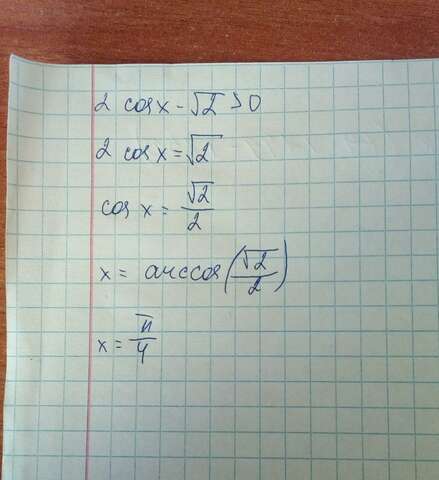 2 cos x - √2 > 0
2 cos x = √2
cos x = √2/2
x = arccos(√2/2)
x = π/4